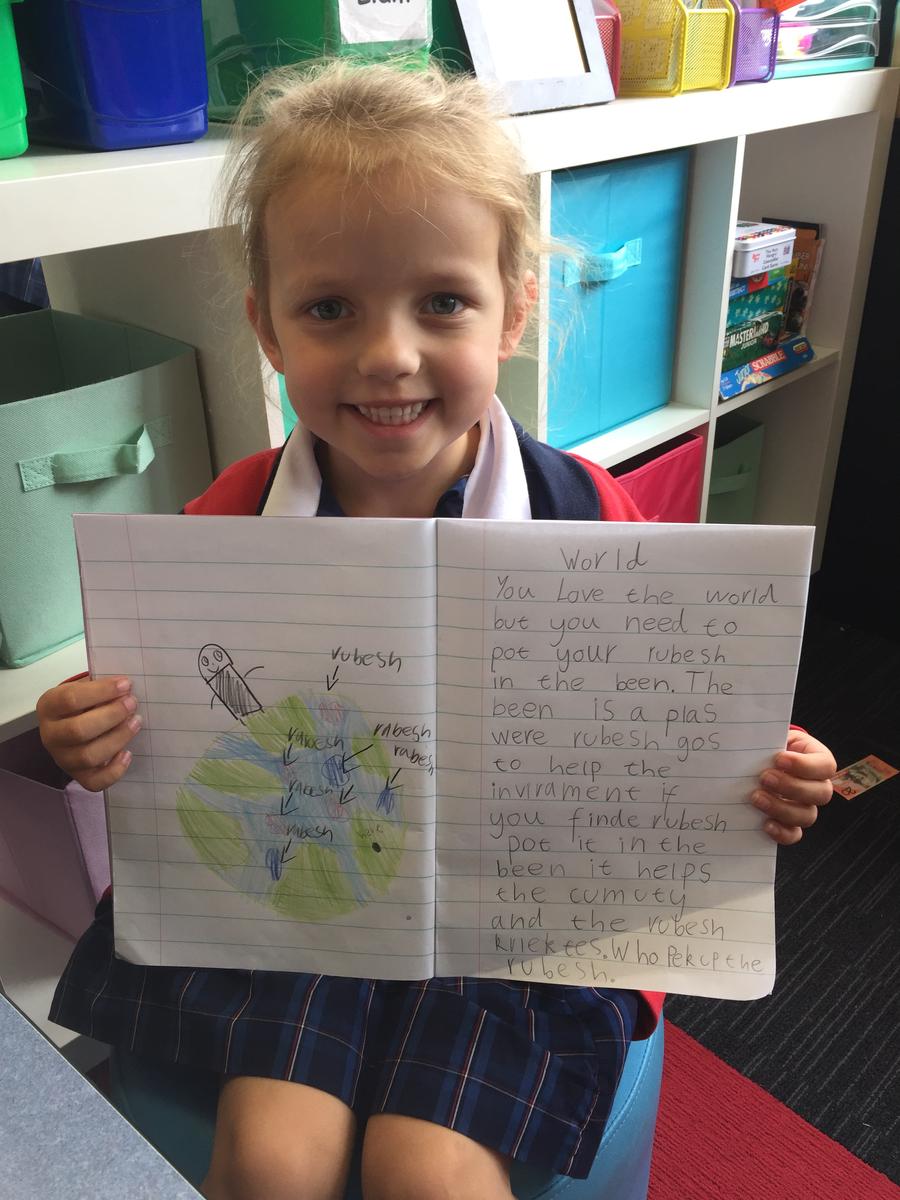 World
You Love the world
but you need to
pot your rubesh
in the been. The
been is a plas
were rubesh gos
to help the
invirament if
you finde rubesh
pot it in the
been it helps
the cumuty
and the rubesh
kriektes. Who Pekup the
rubesh.
rubesh
rubesh
rabesh
rabesh
rubesh
rubesh
MASTER
JUNIOR
Junior SCRABBLE